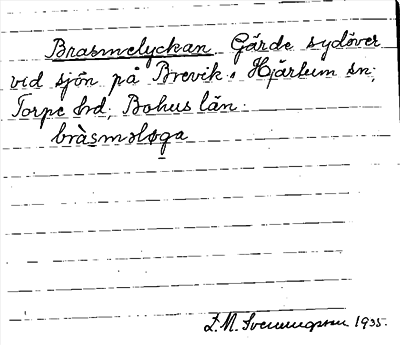 Brasmelyckan Gärde sydöver
vid sjön på Brevik. Hjärtum sn;
Torpe hrd, Bohus län.
bràsmsløga
L.M. Svenungsson 1935.